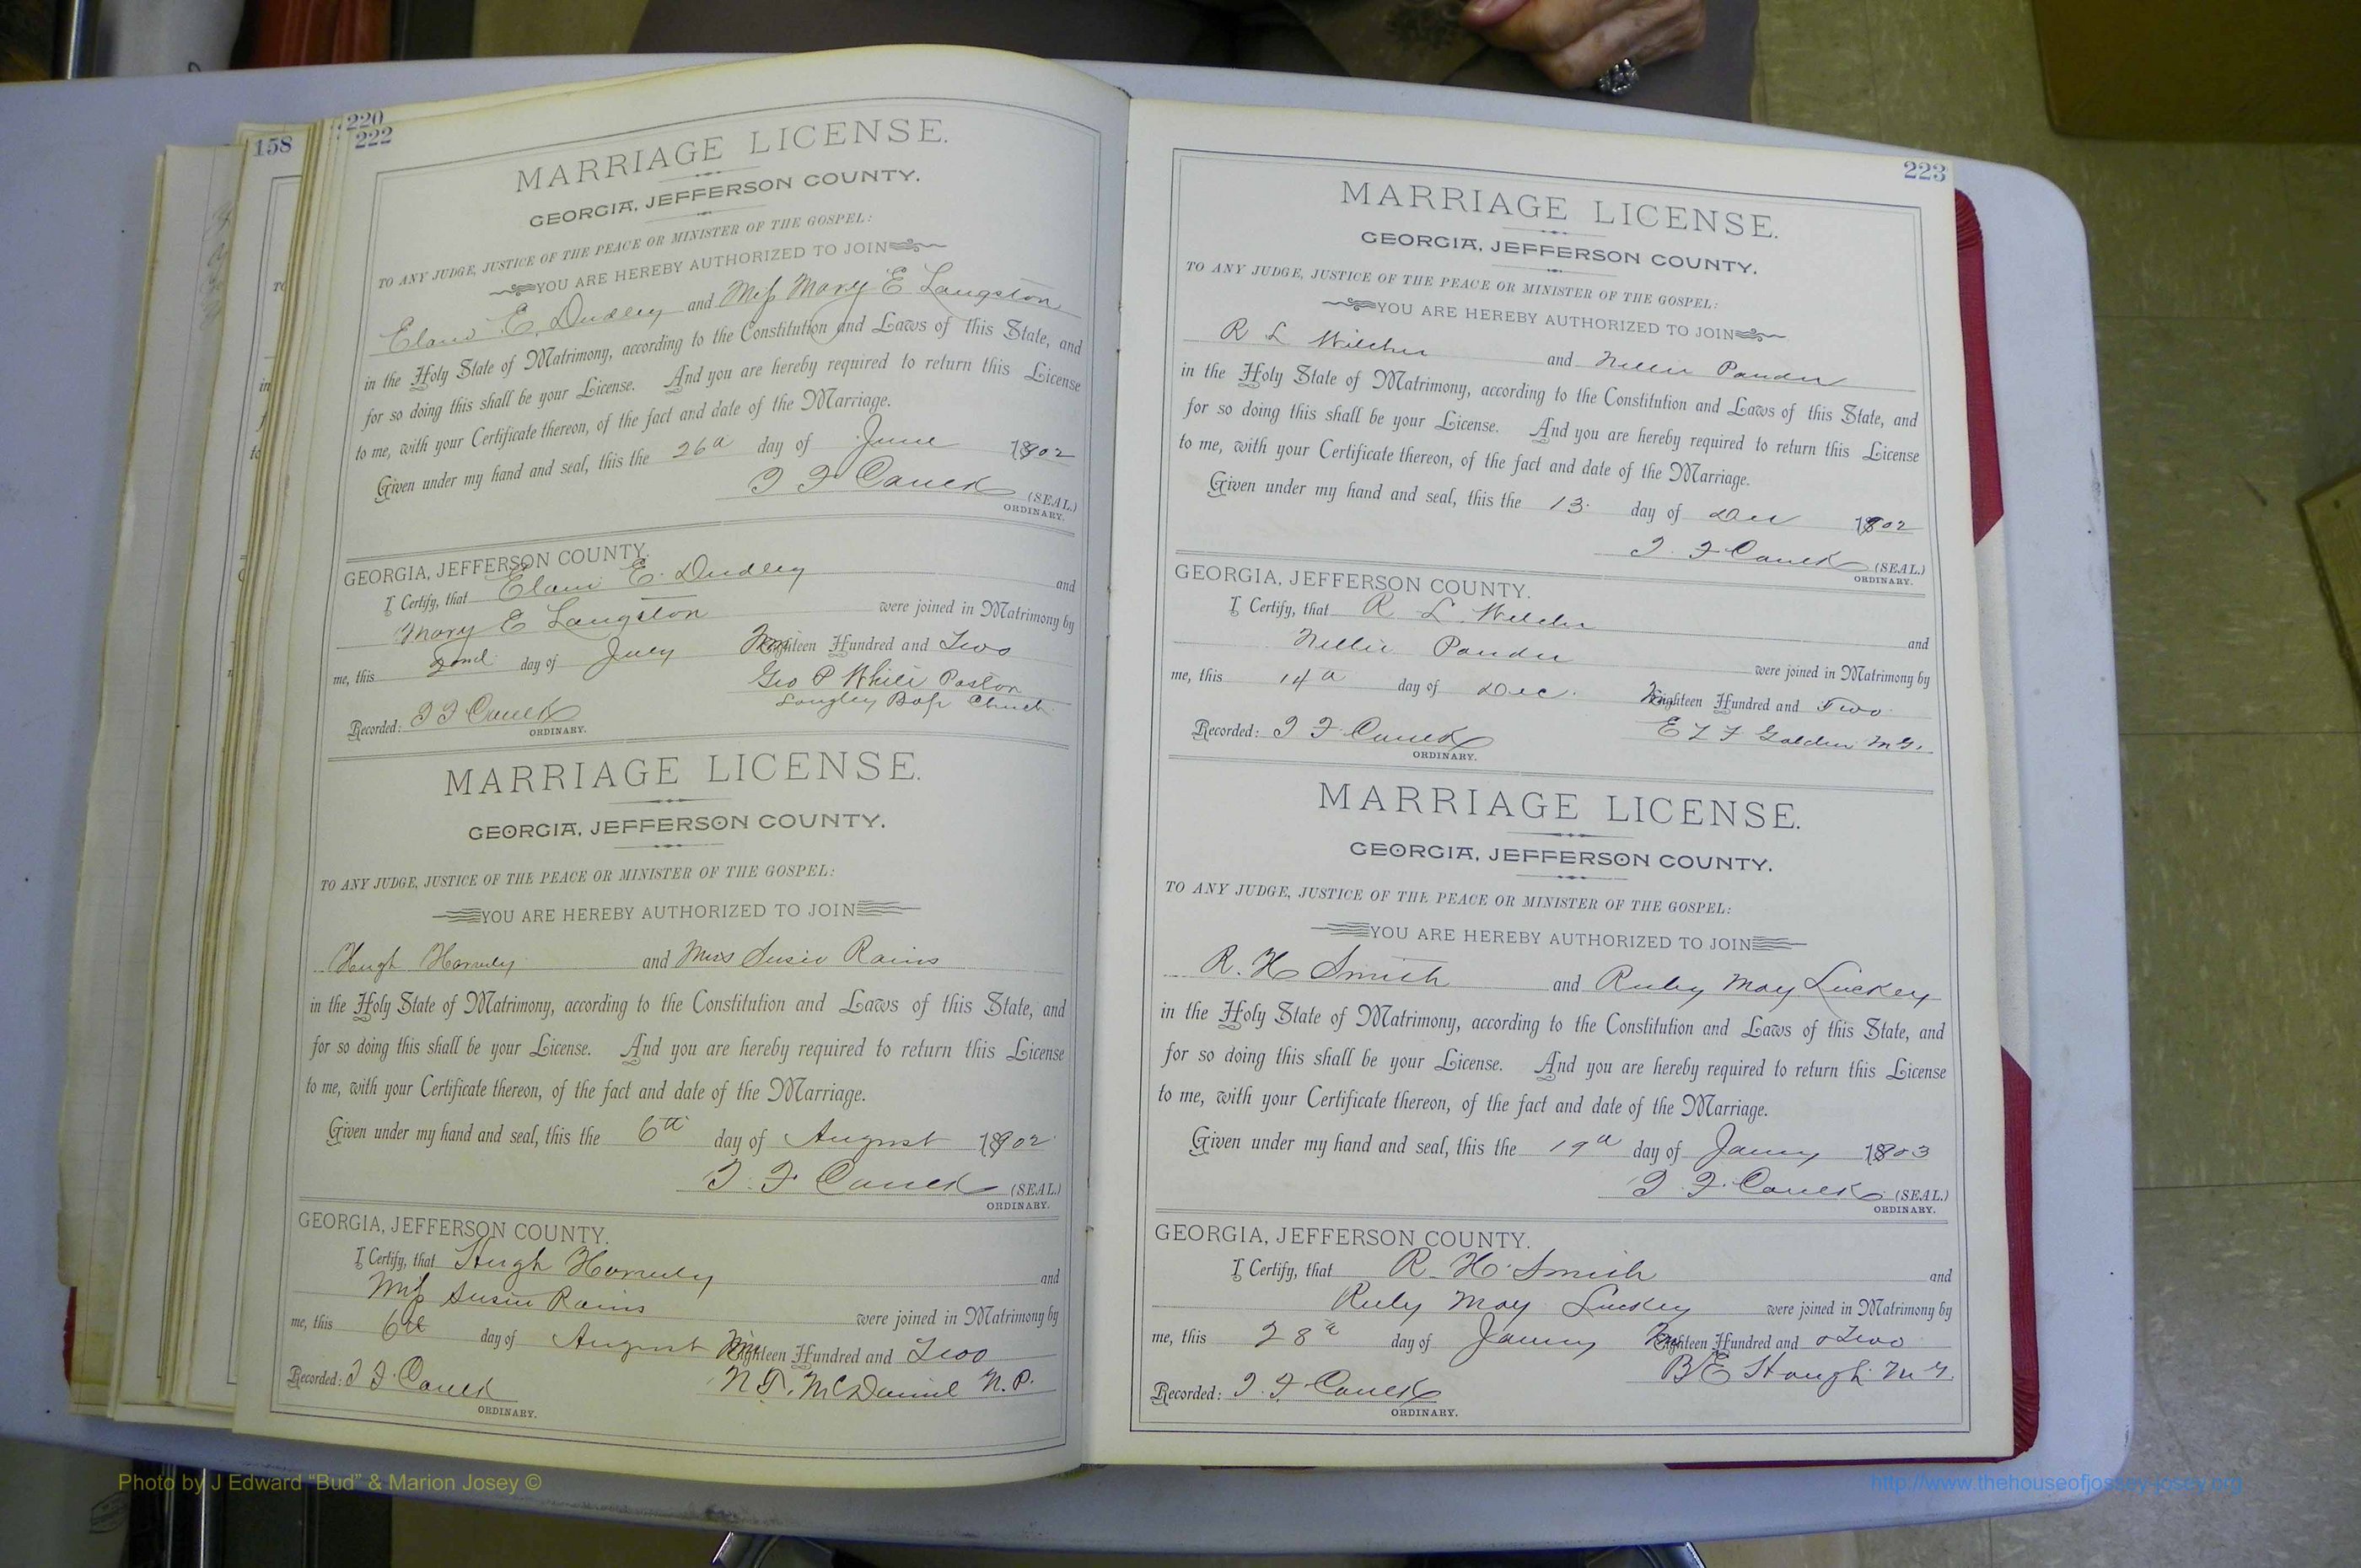 158
220
222
MARRIAGE LICENSE.
GEORGIA, JEFFERSON COUNTY.
TO ANY JUDGE, JUSTICE OF THE PEACE OR MINISTER OF THE GOSPEL:
YOU ARE HEREBY AUTHORIZED TO JOIN
E. Dudley and Miss Mary E Langston
in the Holy State of Matrimony, according to the Constitution and Laws of this State, and
for so doing this shall be your License. And you are hereby required to return this License
to me, with your Certificate thereon, of the fact and date of the Marriage.
Given under my hand and seal, this the 26th day of June 1902
(SEAL.)
ORDINARY.
GEORGIA, JEFFERSON COUNTY.
I Certify, that E. Dudley and
Mary E Langston were joined in Matrimony by
me, this 2nd day of July Nineteen Hundred and Two
Geo P White Pastor
Langley Bap Church
Recorded:
ORDINARY.
MARRIAGE LICENSE.
GEORGIA, JEFFERSON COUNTY.
TO ANY JUDGE, JUSTICE OF THE PEACE OR MINISTER OF THE GOSPEL:
YOU ARE HEREBY AUTHORIZED TO JOIN
Hugh and Miss Susie Rains
in the Holy State of Matrimony, according to the Constitution and Laws of this State, and
for so doing this shall be your License. And you are hereby required to return this License
to me, with your Certificate thereon, of the fact and date of the Marriage.
Given under my hand and seal, this the 6th day of August 1902
(SEAL.)
ORDINARY.
GEORGIA, JEFFERSON COUNTY.
I Certify, that Hugh and
Miss Susie Rains were joined in Matrimony by
me, this 6th day of August Nineteen Hundred and Two
N. T. McDaniel N. P.
Recorded:
ORDINARY.
223
MARRIAGE LICENSE.
GEORGIA, JEFFERSON COUNTY.
TO ANY JUDGE, JUSTICE OF THE PEACE OR MINISTER OF THE GOSPEL:
YOU ARE HEREBY AUTHORIZED TO JOIN
R L Wilcher and Nellie
in the Holy State of Matrimony, according to the Constitution and Laws of this State, and
for so doing this shall be your License. And you are hereby required to return this License
to me, with your Certificate thereon, of the fact and date of the Marriage.
Given under my hand and seal, this the 13 day of Dec 1902
(SEAL.)
ORDINARY.
GEORGIA, JEFFERSON COUNTY.
I Certify, that R L. Wilcher and
Nellie were joined in Matrimony by
me, this 14th day of Dec. Nineteen Hundred and Two
Golden M.G.
Recorded:
ORDINARY.
MARRIAGE LICENSE.
GEORGIA, JEFFERSON COUNTY.
TO ANY JUDGE, JUSTICE OF THE PEACE OR MINISTER OF THE GOSPEL:
YOU ARE HEREBY AUTHORIZED TO JOIN
R. H Smith and Ruby May Luckey
in the Holy State of Matrimony, according to the Constitution and Laws of this State, and
for so doing this shall be your License. And you are hereby required to return this License
to me, with your Certificate thereon, of the fact and date of the Marriage.
Given under my hand and seal, this the 19th day of Janny 1903
(SEAL.)
ORDINARY.
GEORGIA, JEFFERSON COUNTY.
I Certify, that R. H. Smith and
Ruby May Luckey were joined in Matrimony by
me, this 28th day of Janny Nineteen Hundred and Two
M G.
Recorded:
ORDINARY.
Photo by J Edward “Bud” & Marion Josey ©
http://www.thehouseofjossey-josey.org